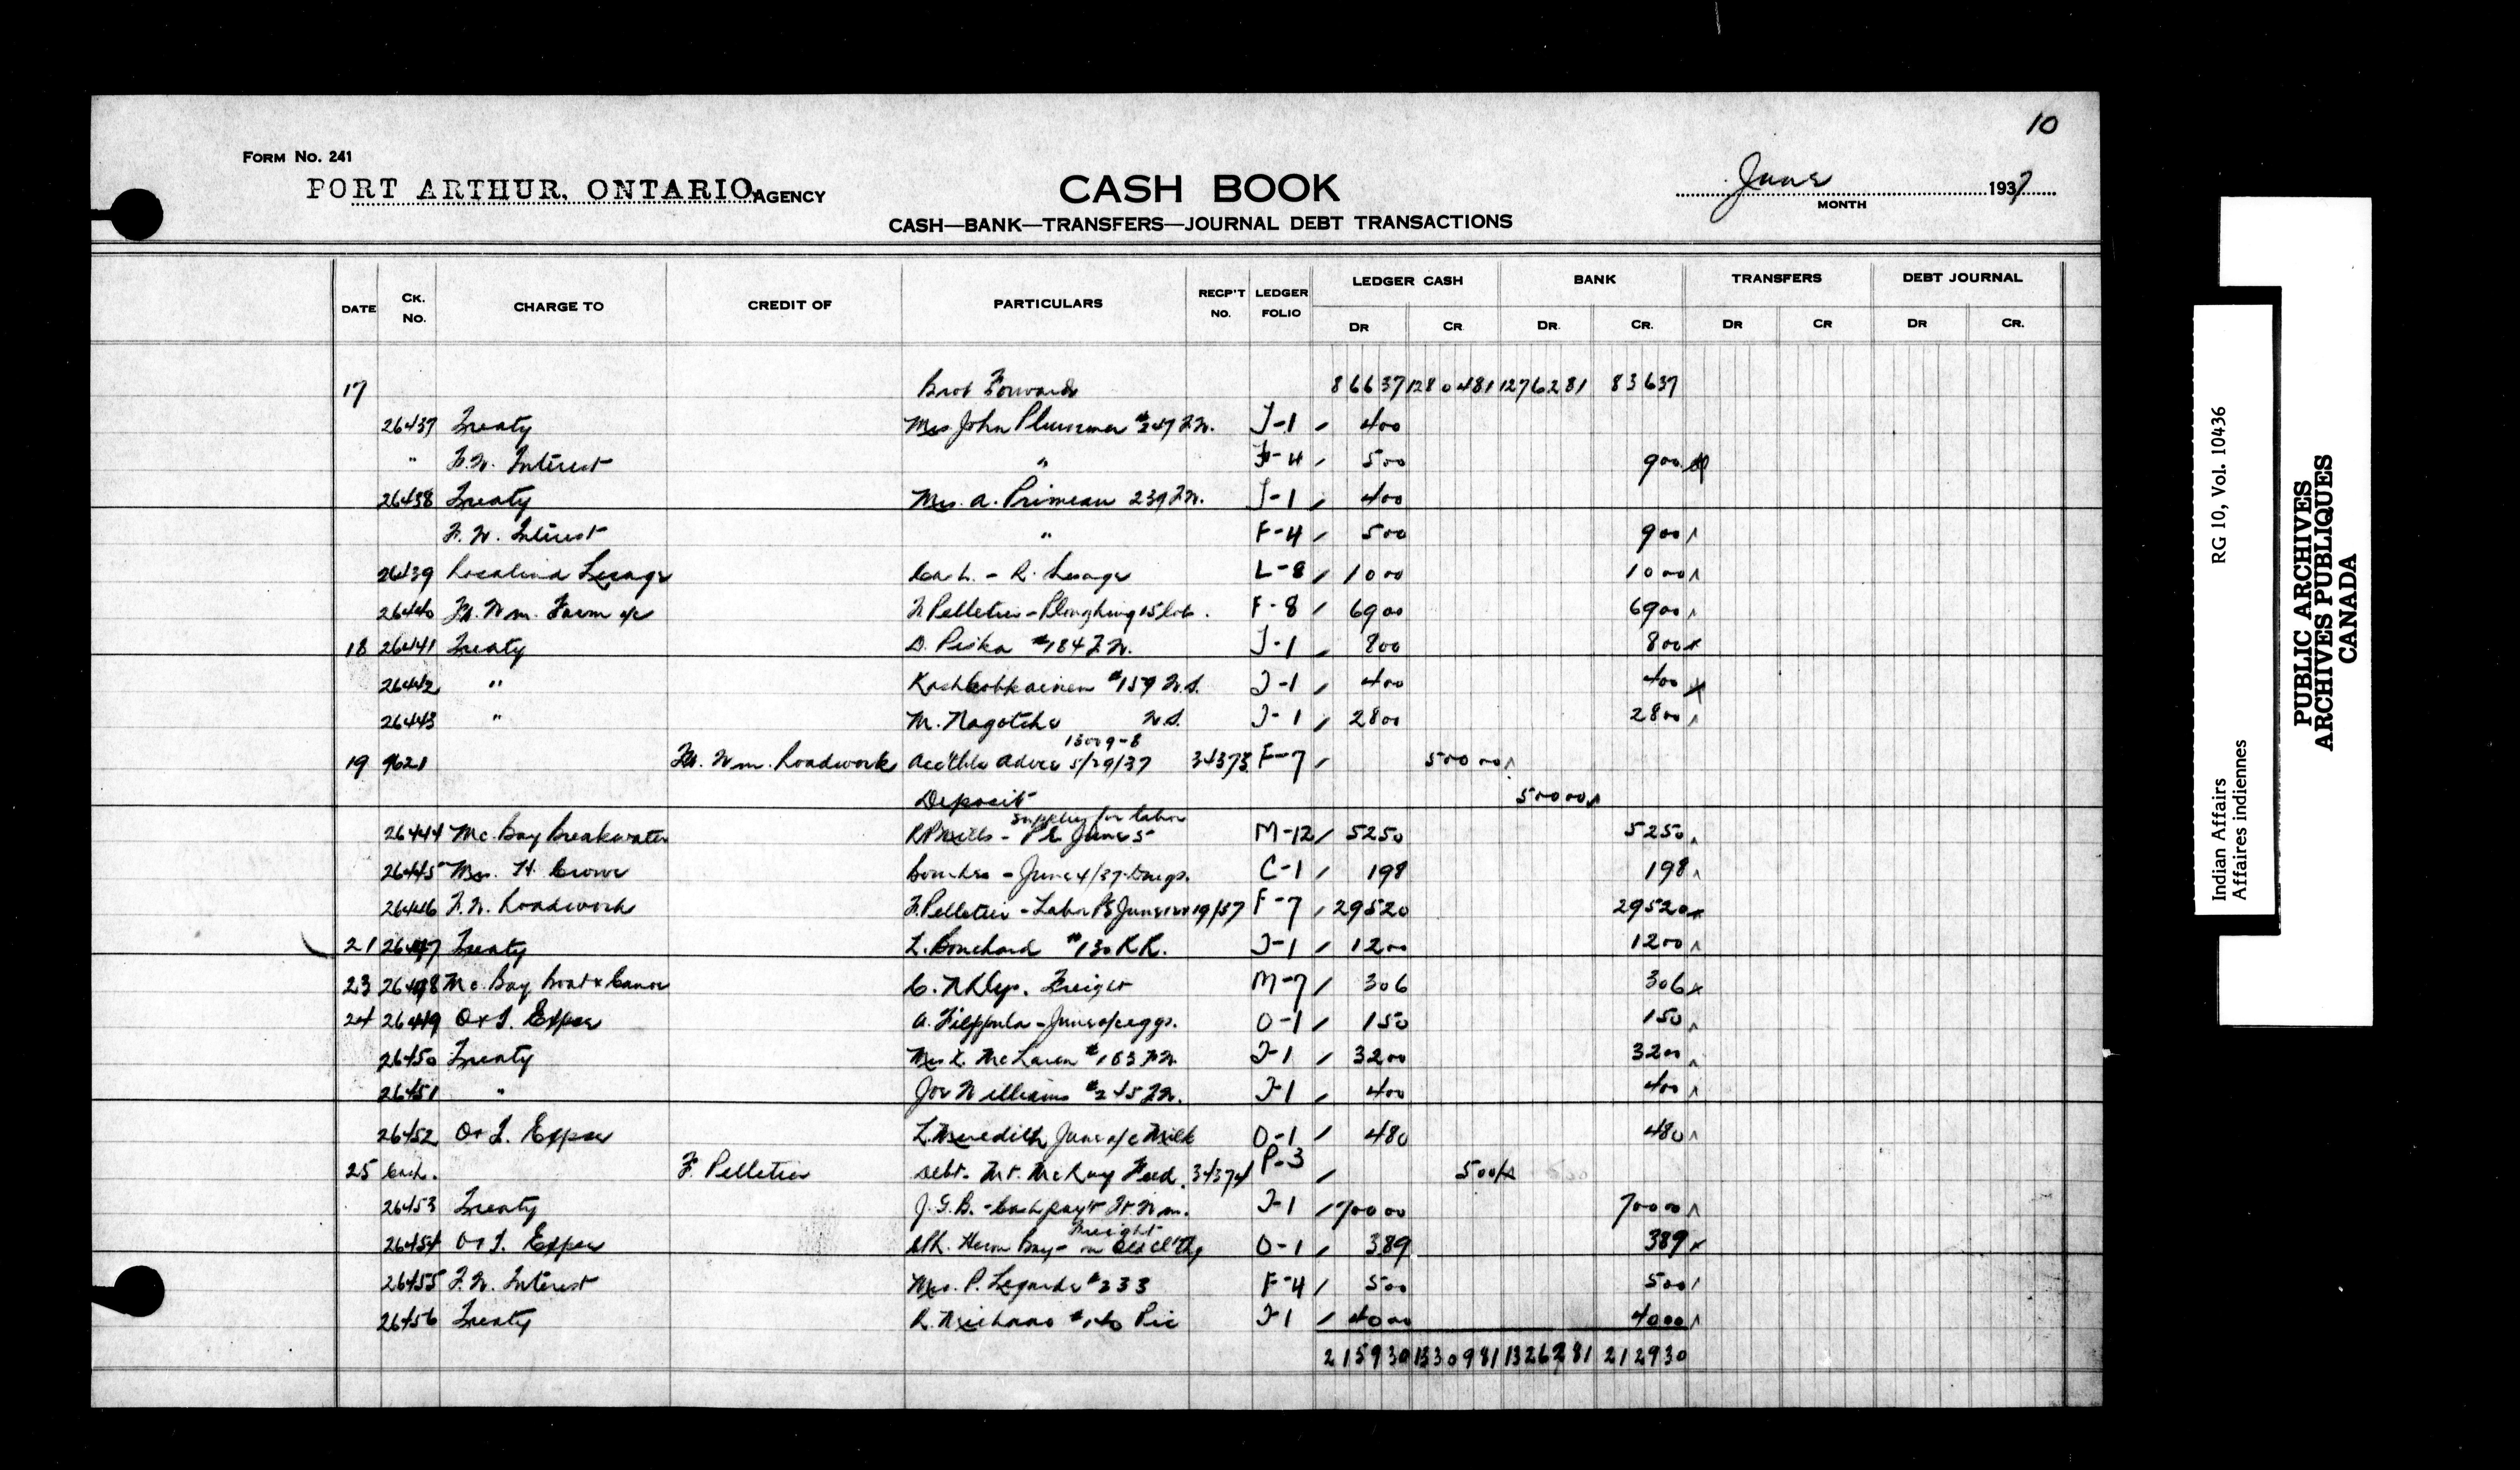 10
FORM NO. 241
PORT ARTHUR, ONTARIO. AGENCY
CASH BOOK
June 1937
MONTH
CASH—BANK—TRANSFERS—JOURNAL DEBT TRANSACTIONS
DATE CK. No. CHARGE TO CREDIT OF PARTICULARS RECP'T NO. LEDGER FOLIO LEDGER CASH BANK TRANSFERS DEBT JOURNAL
DR CR. DR. CR. DR CR DR CR.
17 Brot Forward 86637 1280481 1276281 83637
26437 Treaty Mrs John Plummer #247 F.W. T-1 / 400
" F.W. Interest " F-4 / 500 900
26438 Treaty Mrs. A. Primeau 239 F.W. T-1 / 400
F.W. Interest " F-4 / 500 900
26439 Rosalind Lesage Cash - R. Lesage L-8 / 1000 1000
26440 Ft. Wm. Farm a/c F. Pelletier - Ploughing 15 lots. F-8 / 6900 6900
18 26441 Treaty D. Piska #184 F.W. T-1 / 800 800
26442 " #159 N.S. T-1 / 400 400
26443 " M. Nagotcha N.S. T-1 / 2800 2800
13009-8
19 9621 Ft. Wm. Roadwork Acc'tble Advce 5/29/37 34373 F-7 / 50000
Deposit 50000
Supplies for labor
26444 Mc. Bay Breakwater R P Mills - P.L. June 5 M-12 / 5250 5250
26445 Mrs. H. Crowe Coombes - June 4/37 Drugs. C-1 / 198 198
26446 F.W. Roadwork F. Pelletier - Labor P.L. June 19/37 F-7 / 29520 29520
21 26447 Treaty L. Bouchard #130 R.R. T-1 / 1200 1200
23 26448 Mc. Bay Boat & Canoe C.N. Freight M-7 / 306 306
24 26449 O & I. Expse A. Filppula - June a/c eggs. O-1 / 150 150
26450 Treaty Mrs L. McLaren #163 F.W. T-1 / 3200 3200
26451 " Joe Williams #245 F.W. T-1 / 400 400
26452 O & I. Expse L. Meredith June a/c Milk O-1 / 480 480
25 Cash. F. Pelletier Debt. Mt. McKay Feed. 34374 P-3 / 500
26453 Treaty J.G.B. - Cash pay't Ft Wm. T-1 / 70000 70000
Freight
26454 O & I. Expse Heron Bay - on Old Cl'thg O-1 / 389 389
26455 F.W. Interest Mrs. P. Legarde #233 F-4 / 500 500
26456 Treaty R. Michano #140 Pic T-1 / 4000 4000
215930 1330981 1326281 212930
Indian Affairs RG 10, Vol. 10436
Affaires indiennes
PUBLIC ARCHIVES
ARCHIVES PUBLIQUES
CANADA